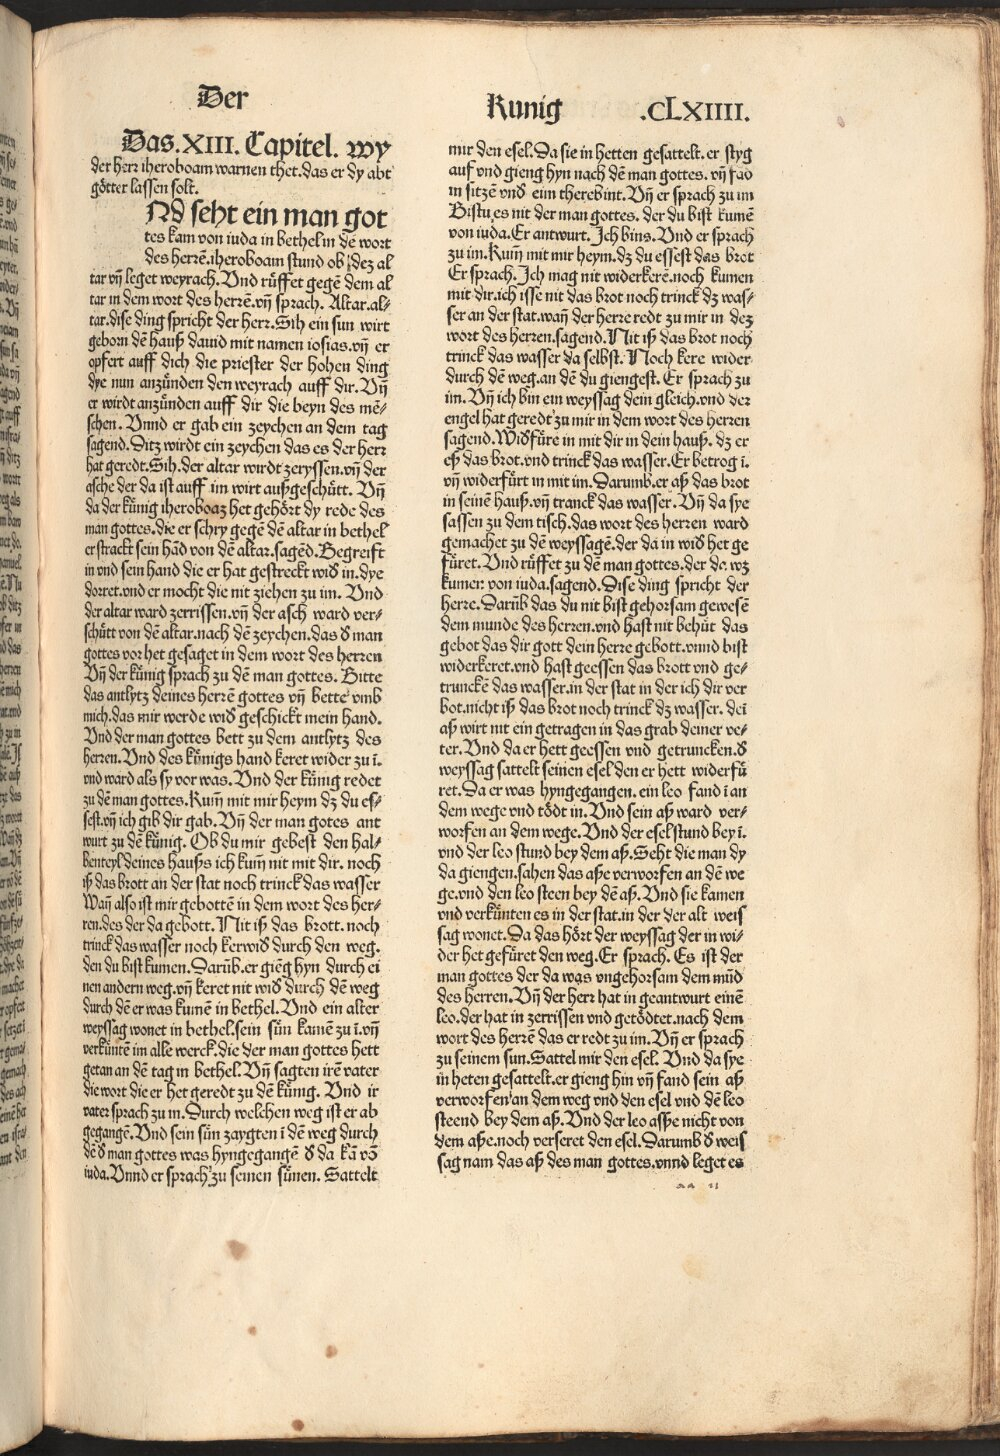 Der
Kunig .CLXIIII.
Das.XIII. Capitel. wy
der herr iheroboam warnen thet.das er dy abt
götter lassen solt.
ND seht ein man got
tes kam von iuda in bethel in dē wort
des herrē.iheroboam stund ob dez al
tar vñ leget weyrach.Vnd rüffet gegē dem al
tar in dem wort des herrē.vñ sprach. Altar.al⸗
tar.dise ding spricht der herr.Sih ein sun wirt
geborn dē hauß dauid mit namen iosias.vñ er
opfert auff dich die priester der hohen ding
dye nun anzünden den weyrach auff dir.Vñ
er wirdt anzünden auff dir die beyn des mē⸗
schen. Vnnd er gab ein zeychen an dem tag
sagend.Ditz wirdt ein zeychen das es der herr
hat geredt.Sih.der altar wirdt zeryssen.vñ der
asche der da ist auff im wirt außgeschütt. Vñ
da der künig iheroboaz het gehört dy rede des
man gottes.die er schry gegē dē altar in bethel
er strackt sein hād von dē altar.sagēd.Begreift
in vnd sein hand die er hat gestreckt wið in.dye
dorret.vnd er mocht die nit ziehen zu im. Vnd
der altar ward zerrissen.vñ der asch ward ver⸗
schütt von dē altar.nach dē zeychen.das ð man
gottes vor het gesaget in dem wort des herren
Vñ der künig sprach zu dē man gottes. Bitte
das antlytz deines herrē gottes vñ bette vmb
mich.das mir werde wið geschickt mein hand.
Vnd der man gottes bett zu dem antlytz des
herren.Vnd des künigs hand keret wider zu ī.
vnd ward als sy vor was.Vnd der künig redet
zu dē man gottes.Kum̄ mit mir heym dz du es⸗
sest.vñ ich gib dir gab.Vñ der man gotes ant
wurt zu dē künig. Ob du mir gebest den hal⸗
benteyl deines hauß ich kum̄ nit mit dir. noch
iß das brott an der stat noch trinck das wasser
Wañ also ist mir gebottē in dem wort des her⸗
ren.des der da gebott.Nit iß das brott.noch
trinck das wasser noch kerwið durch den weg.
den du bist kumen.Darūb.er giēg hyn durch ei
nen andern weg.vñ keret nit wið durch dē weg
durch dē er was kumē in bethel.Vnd ein alter
weyssag wonet in bethel.sein sün kamē zu ī.vñ
verküntē im alle werck.die der man gottes hett
getan an dē tag in bethel.Vñ sagten irē vater
die wort die er het geredt zu dē künig. Vnd ir
vater sprach zu in.Durch welchen weg ist er ab
gegangē.Vnd sein sün zaygten ī dē weg durch
dē ð man gottes was hyngegangē ð da kā vō
iuda.Vnnd er sprach zu seinen sünen. Sattelt
mir den esel.Da sie in hetten gesattelt.er styg
auf vnd gieng hyn nach dē man gottes. vñ fād
in sitzē vnð eim therebint.Vñ er sprach zu im
Bistu es nit der man gottes. der du bist kumē
von iuda.Er antwurt.Ich bins.Vnd er sprach
zu im.Kum̄ mit mir heym.dz du essest das brot
Er sprach.Ich mag nit widerkerē.noch kumen
mit dir.ich isse nit das brot noch trinck dz was⸗
ser an der stat.wañ der herre redt zu mir in dez
wort des herren.sagend.Nit iß das brot noch
trinck das wasser da selbst.Noch kere wider
durch dē weg.an dē du giengest. Er sprach zu
im.Vñ ich bin ein weyssag dein gleich.vnd der
engel hat geredt zu mir in dem wort des herren
sagend.Wiðfüre in mit dir in dein hauß. dz er
eß das brot.vnd trinck das wasser.Er betrog ī.
vñ widerfürt in mit im.Darumb.er aß das brot
in seinē hauß.vñ tranck das wasser.Vñ da sye
sassen zu dem tisch.das wort des herren ward
gemachet zu dē weyssagē.der da in wið het ge
füret.Vnd rüffet zu dē man gottes.der da wz
kumen von iuda.sagend.Dise ding spricht der
herre.Darūb das du nit bist gehorsam gewesē
dem munde des herren.vnd hast nit behüt das
gebot das dir gott dein herre gebott.vnnd bist
widerkeret.vnd hast geessen das brott vnd ge⸗
trunckē das wasser.in der stat in der ich dir ver
bot.nicht iß das brot noch trinck dz wasser. deī
aß wirt nit ein getragen in das grab deiner ve⸗
ter.Vnd da er hett geessen vnd getruncken.ð
weyssag sattelt seinen esel den er hett widerfü
ret.Da er was hyngegangen.ein leo fand ī an
dem wege vnd tödt in.Vnd sein aß ward ver⸗
worfen an dem wege.Vnd der esel stund bey ī.
vnd der leo stund bey dem aß.Seht die man dy
da giengen.sahen das aße verworfen an dē we
ge.vnd den leo steen bey dē aß.Vnd sie kamen
vnd verkünten es in der stat.in der der alt weis
sag wonet.Da das hört der weyssag der in wi⸗
der het gefüret den weg.Er sprach. Es ist der
man gottes der da was vngehorsam dem mūd
des herren.Vñ der herr hat in geantwurt einē
leo.der hat in zerrissen vnd getödtet.nach dem
wort des herrē das er redt zu im.Vñ er sprach
zu seinem sun.Sattel mir den esel. Vnd da sye
in heten gesattelt.er gieng hin vñ fand sein aß
verworfen an dem weg vnd den esel vnd dē leo
steend bey dem aß.Vnd der leo asse nicht von
dem aße.noch verseret den esel.Darumb ð weis
sag nam das aß des man gottes.vnnd leget es